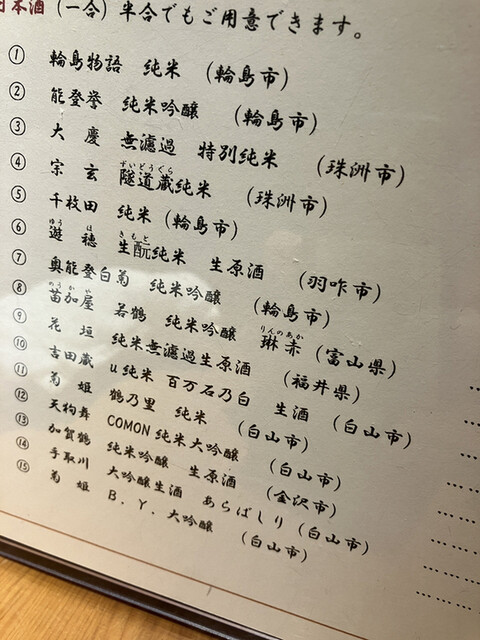 日本酒（一合）半合でもご用意できます。
① 輪島物語 純米 （輪島市）
② 能登誉 純米吟醸 （輪島市）
③ 大慶 無濾過 特別純米 （珠洲市）
④ 宗玄 隧道蔵純米 （珠洲市）
ずいどうぐら
⑤ 千枚田 純米（輪島市）
⑥ 遊穂 生酛純米 生原酒 （羽咋市）
ゆうほ きもと
⑦ 奥能登白菊 純米吟醸 （輪島市）
⑧ 苗加屋 若鶴 純米吟醸 琳赤（富山県）
のうかや りんのあか
⑨ 花垣 純米無濾過生原酒 （福井県）
⑩ 吉田蔵 u純米 百万石乃白 生酒 （白山市）
⑪ 菊姫 鶴乃里 純米 （白山市）
⑫ 天狗舞 COMON 純米大吟醸 （白山市）
⑬ 加賀鶴 純米吟醸 生原酒 （金沢市）
⑭ 手取川 大吟醸生酒 あらばしり（白山市）
⑮ 菊姫 B．Y．大吟醸 （白山市）